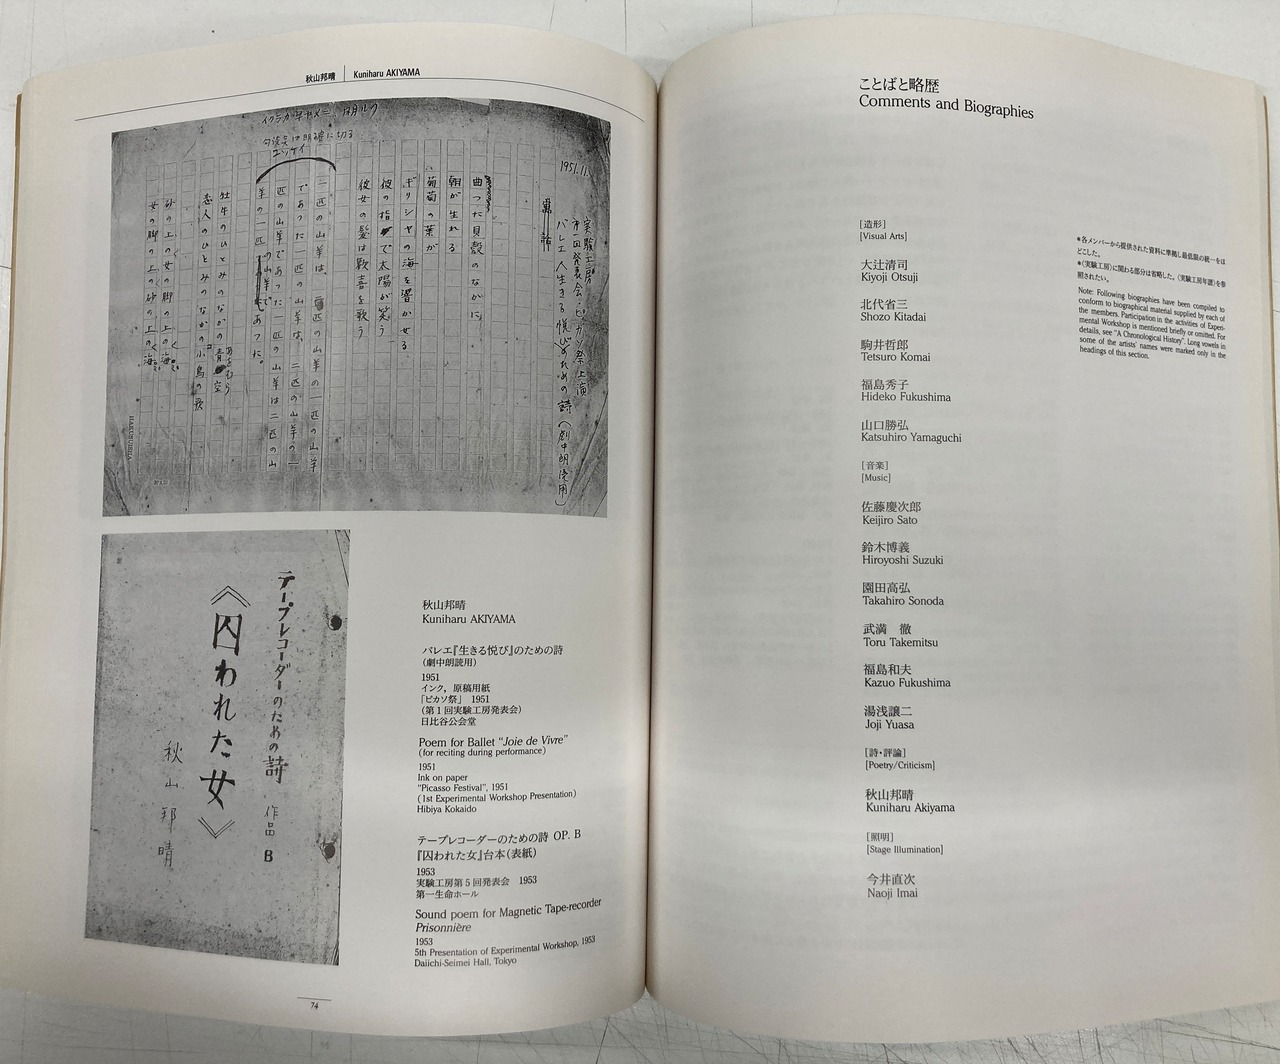 秋山邦晴 Kuniharu AKIYAMA
1951.11.
実験工房
第一回発表会・ピカソ祭上演
バレエ 人生きる悦びのための詩 (劇中朗読用)
曲った貝殻のなかに
朝が生れる
葡萄の葉が
ギリシヤの海を響かせる
彼の指で太陽が笑う
彼女の髪は歓喜を歌う
二匹の山羊は、一匹の山羊の一匹の山羊
であった一匹の山羊は、二匹の山羊の一
匹の山羊であった一匹の山羊は二匹の山
牡牛のひとみのなかの青空
恋人のひとみのなかの小鳥の歌
砂の上の女の脚の上の海
女の脚の上の砂の上の海
テープレコーダーのための詩 作品B
《囚われた女》
秋山邦晴
秋山邦晴
Kuniharu AKIYAMA
バレエ『生きる悦び』のための詩
(劇中朗読用)
1951
インク，原稿用紙
「ピカソ祭」 1951
(第1回実験工房発表会)
日比谷公会堂
Poem for Ballet "Joie de Vivre"
(for reciting during performance)
1951
Ink on paper
"Picasso Festival", 1951
(1st Experimental Workshop Presentation)
Hibiya Kokaido
テープレコーダーのための詩 OP. B
『囚われた女』台本(表紙)
1953
実験工房第5回発表会 1953
第一生命ホール
Sound poem for Magnetic Tape-recorder
Prisonnière
1953
5th Presentation of Experimental Workshop, 1953
Daiichi-Seimei Hall, Tokyo
74
ことばと略歴
Comments and Biographies
[造形]
[Visual Arts]
大辻清司
Kiyoji Otsuji
北代省三
Shozo Kitadai
駒井哲郎
Tetsuro Komai
福島秀子
Hideko Fukushima
山口勝弘
Katsuhiro Yamaguchi
[音楽]
[Music]
佐藤慶次郎
Keijiro Sato
鈴木博義
Hiroyoshi Suzuki
園田高弘
Takahiro Sonoda
武満 徹
Toru Takemitsu
福島和夫
Kazuo Fukushima
湯浅譲二
Joji Yuasa
[詩・評論]
[Poetry/Criticism]
秋山邦晴
Kuniharu Akiyama
[照明]
[Stage Illumination]
今井直次
Naoji Imai
*各メンバーから提供された資料に準拠し最低限の統一をほ
どこした。
*〈実験工房〉に関わる部分は省略した。〈実験工房年譜〉を参
照されたい。
Note: Following biographies have been compiled to
conform to biographical material supplied by each of
the members. Participation in the activities of Experi-
mental Workshop is mentioned briefly or omitted. For
details, see "A Chronological History". Long vowels in
some of the artists' names were marked only in the
headings of this section.